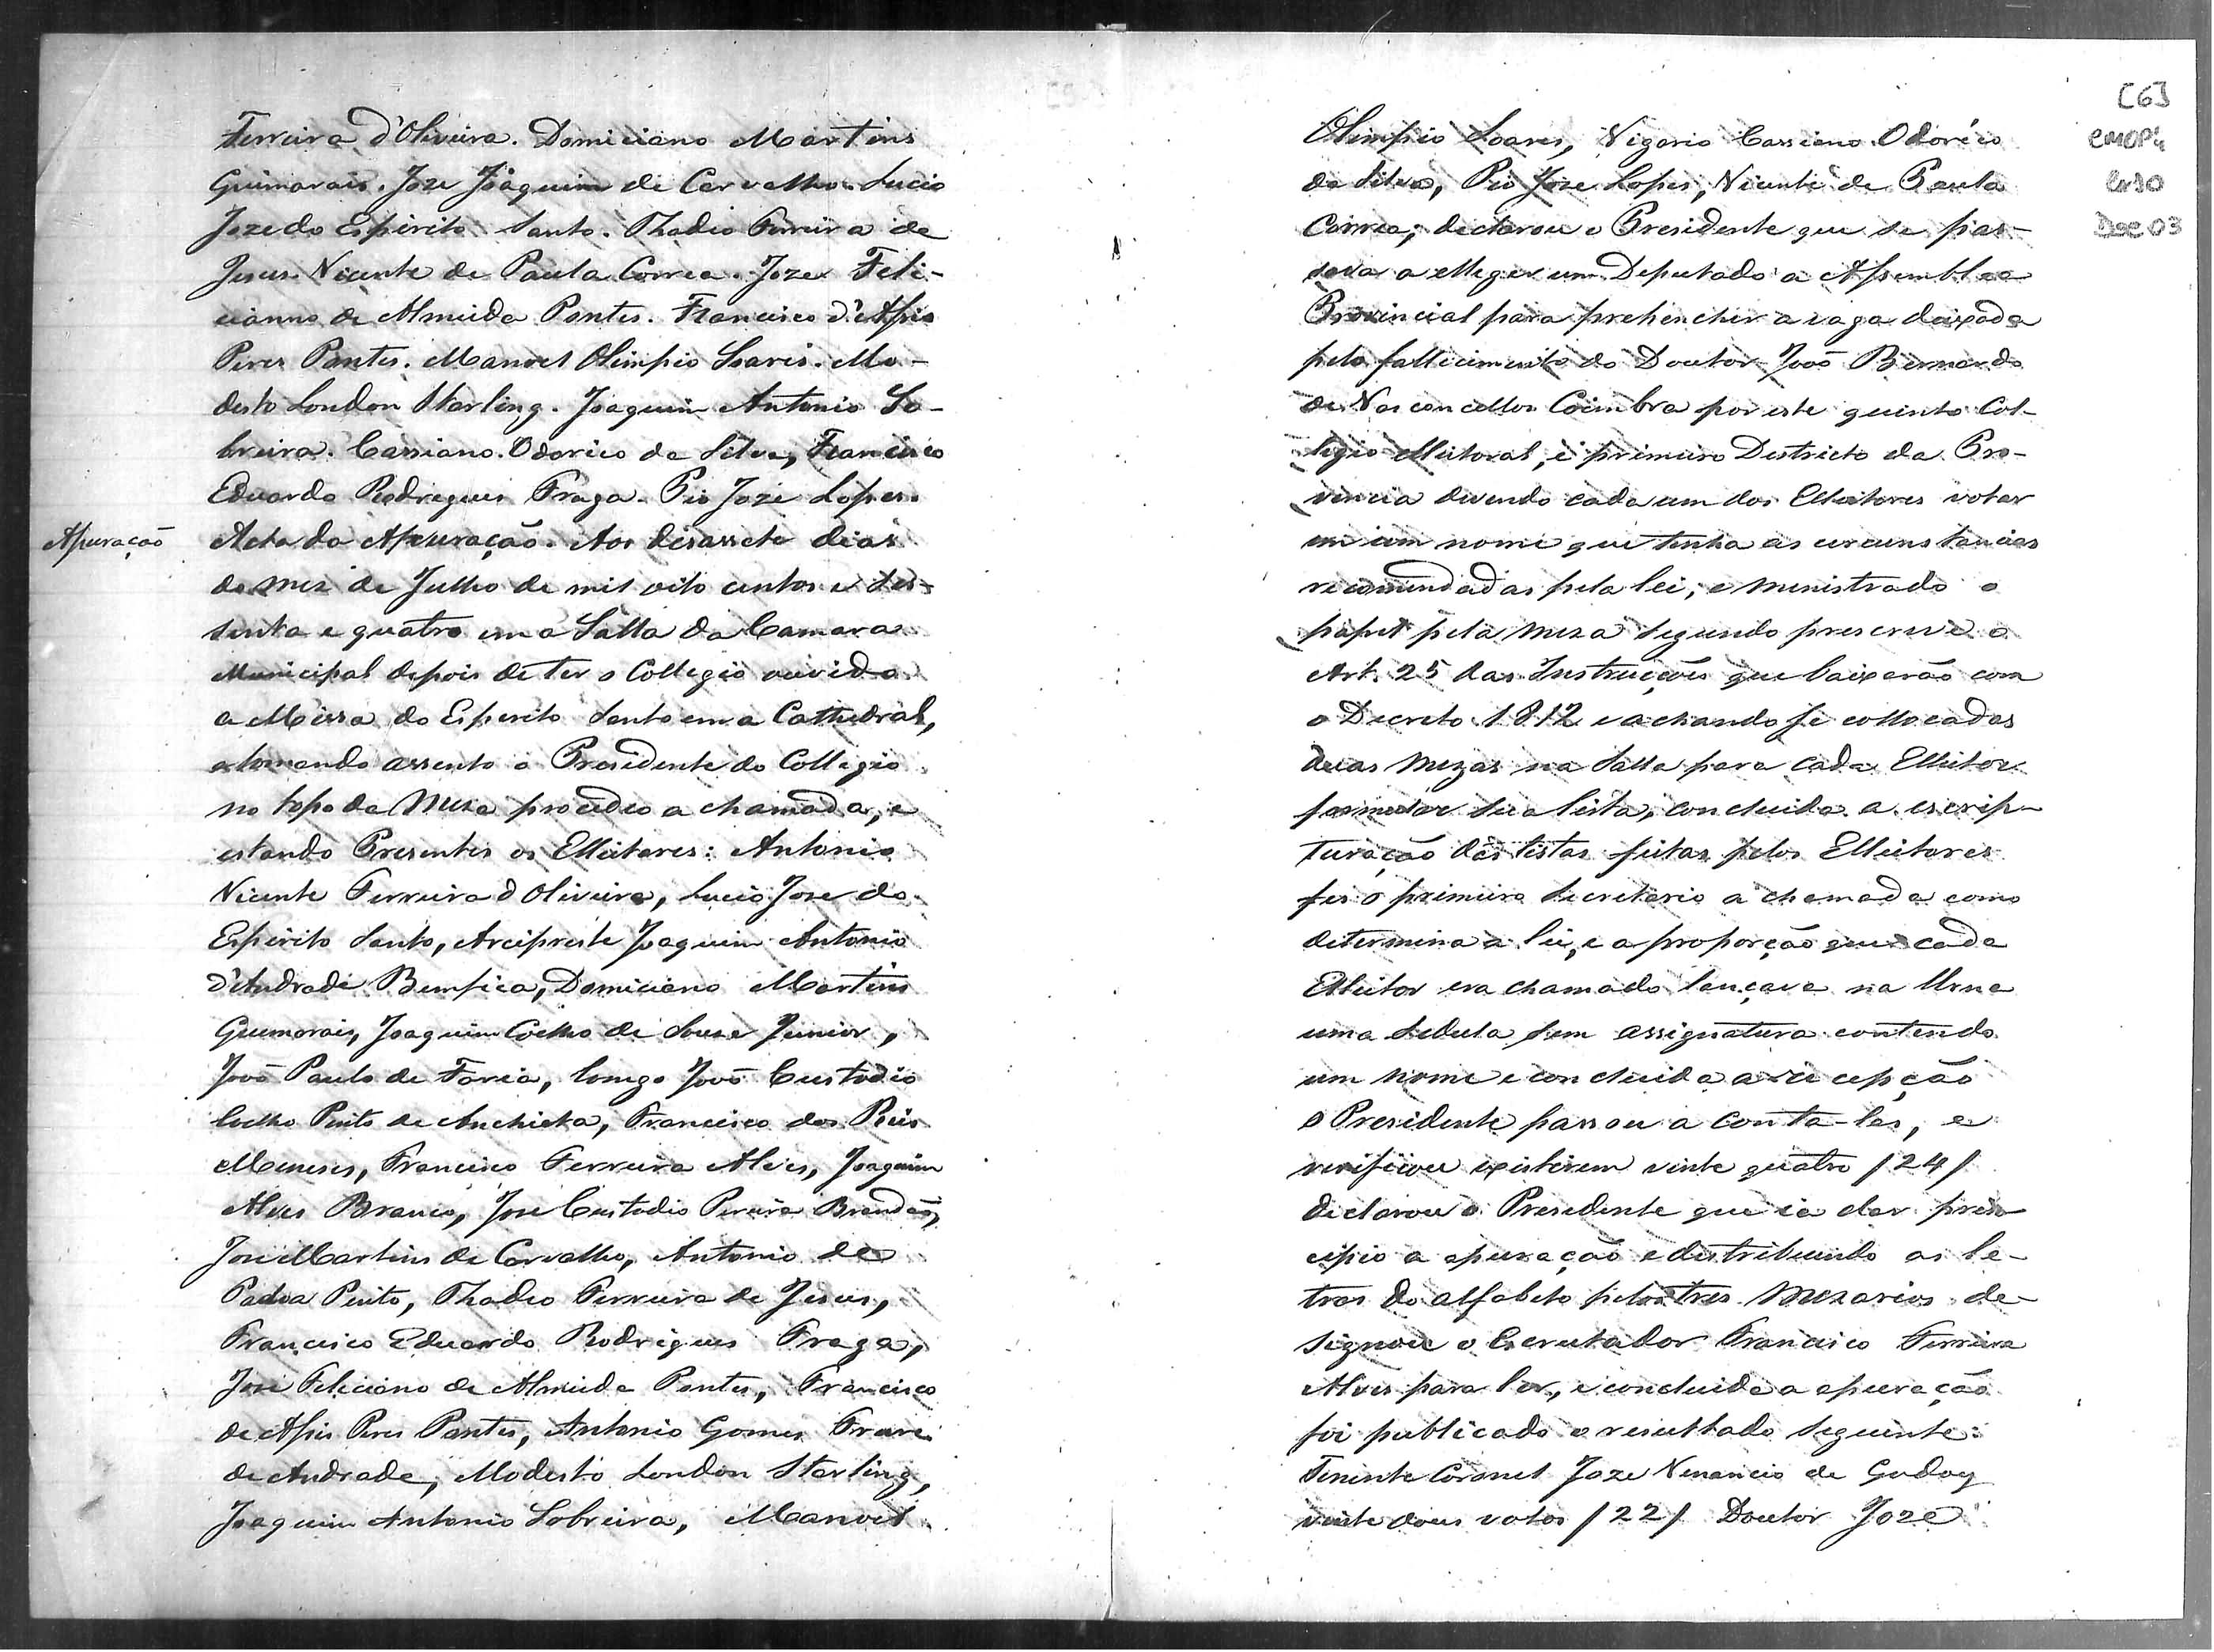 Ferreira d'Oliveira. Domiciano Martins
Guimarais. Joze Joaquim de Carvalho. Lucio
Joze do Espirito Santo. Thadeo Ferreira de
Jesus. Vicente de Paula Correa. Joze Feli-
cianno de Almeida Pontes. Francisco d'Assis
Peres Pontes. Manoel Olimpio Soares. Mo-
desto London Starling. Joaquim Antonio So-
breira. Cassiano Odorico da Silva, Francisco
Eduardo Rodrigues Fraga. Pio Joze Lopes.
Apuração
Acta da Apuração. Aos desassete dias
do mez de Julho de mil oito centos e ses-
senta e quatro em a Salla da Camara
Municipal depois de ter o Collegio ouvido
a Missa do Esperito Santo em a Cathedral,
e tomando assento o Presidente do Collegio
no topo da Meza procedeo a chamada, e
estando Presentes os Elleitores: Antonio
Vicente Ferreira d Oliveira, Lucio Jose do
Espirito Santo, Arcipreste Joaquim Antonio
d'Andrade Bemfica, Domiciano Martins
Guemarais, Joaquim Coelho de Souza Junior,
João Paulo de Faria, Conego João Custodio
Coelho Pinto de Anchieta, Francisco dos Reis
Meneses, Francisco Ferreira Alves, Joaquim
Alves Branco, Jose Custodio Pereira Brandão,
Jose Martins de Carvalho, Antonio de
Padua Pinto, Thadeo Ferreira de Jesus,
Francisco Eduardo Rodrigues Fraga,
Jose Feliciano de Almeida Pontes, Francisco
de Assis Peres Pontes, Antonio Gomes Freire
de Andrade, Modesto London Starling,
Joaquim Antonio Sobreira, Manoel
[6]
CMOP
Doc 03
Olimpio Soares, Vigario Cassiano Odorico
da Silva, Pio Joze Lopes, Vicente de Paula
Correa; declarou o Presidente que se pas-
sava a elleger um Deputado a Assemblea
Provincial para prehencher a vaga deixada
pelo fallecimento do Doutor João Bernardo
de Vasconcellos Coimbra por este quinto Col-
legio elleitoral, e primeiro Destricto da Pro-
vincia devendo cada um dos Elleitores votar
em um nome que tenha as circunstancias
recomendadas pela lei, e menistrado o
papel pela meza segundo prescreve o
Art. 25 das Instruções que baixarão com
o Decreto 1812 e achando se collocadas
duas mezas na Salla para cada Elleitor
formular sua lista, concluida a escrip-
turação das listas feitas pelos Elleitores
fes o primeiro Secretario a chamada como
determina a lei, e a proporção que cada
Elleitor era chamado lançava na Urna
uma sedula sem assignatura contendo
um nome e concluida a recepção
o Presidente passou a conta-las, e
verificou existirem vinte quatro /24/
declarou o Presidente que ia dar prin-
cipio a apuração e destribuindo as le-
tras do alfabeto pelos tres Mezarios de-
signou o Escrutador Francisco Ferreira
Alves para ler, e concluida a apuração
foi publicado o resultado seguinte:
Tenente Coronel Joze Venancio de Godoy
vinte dous votos /22/ Doutor Joze